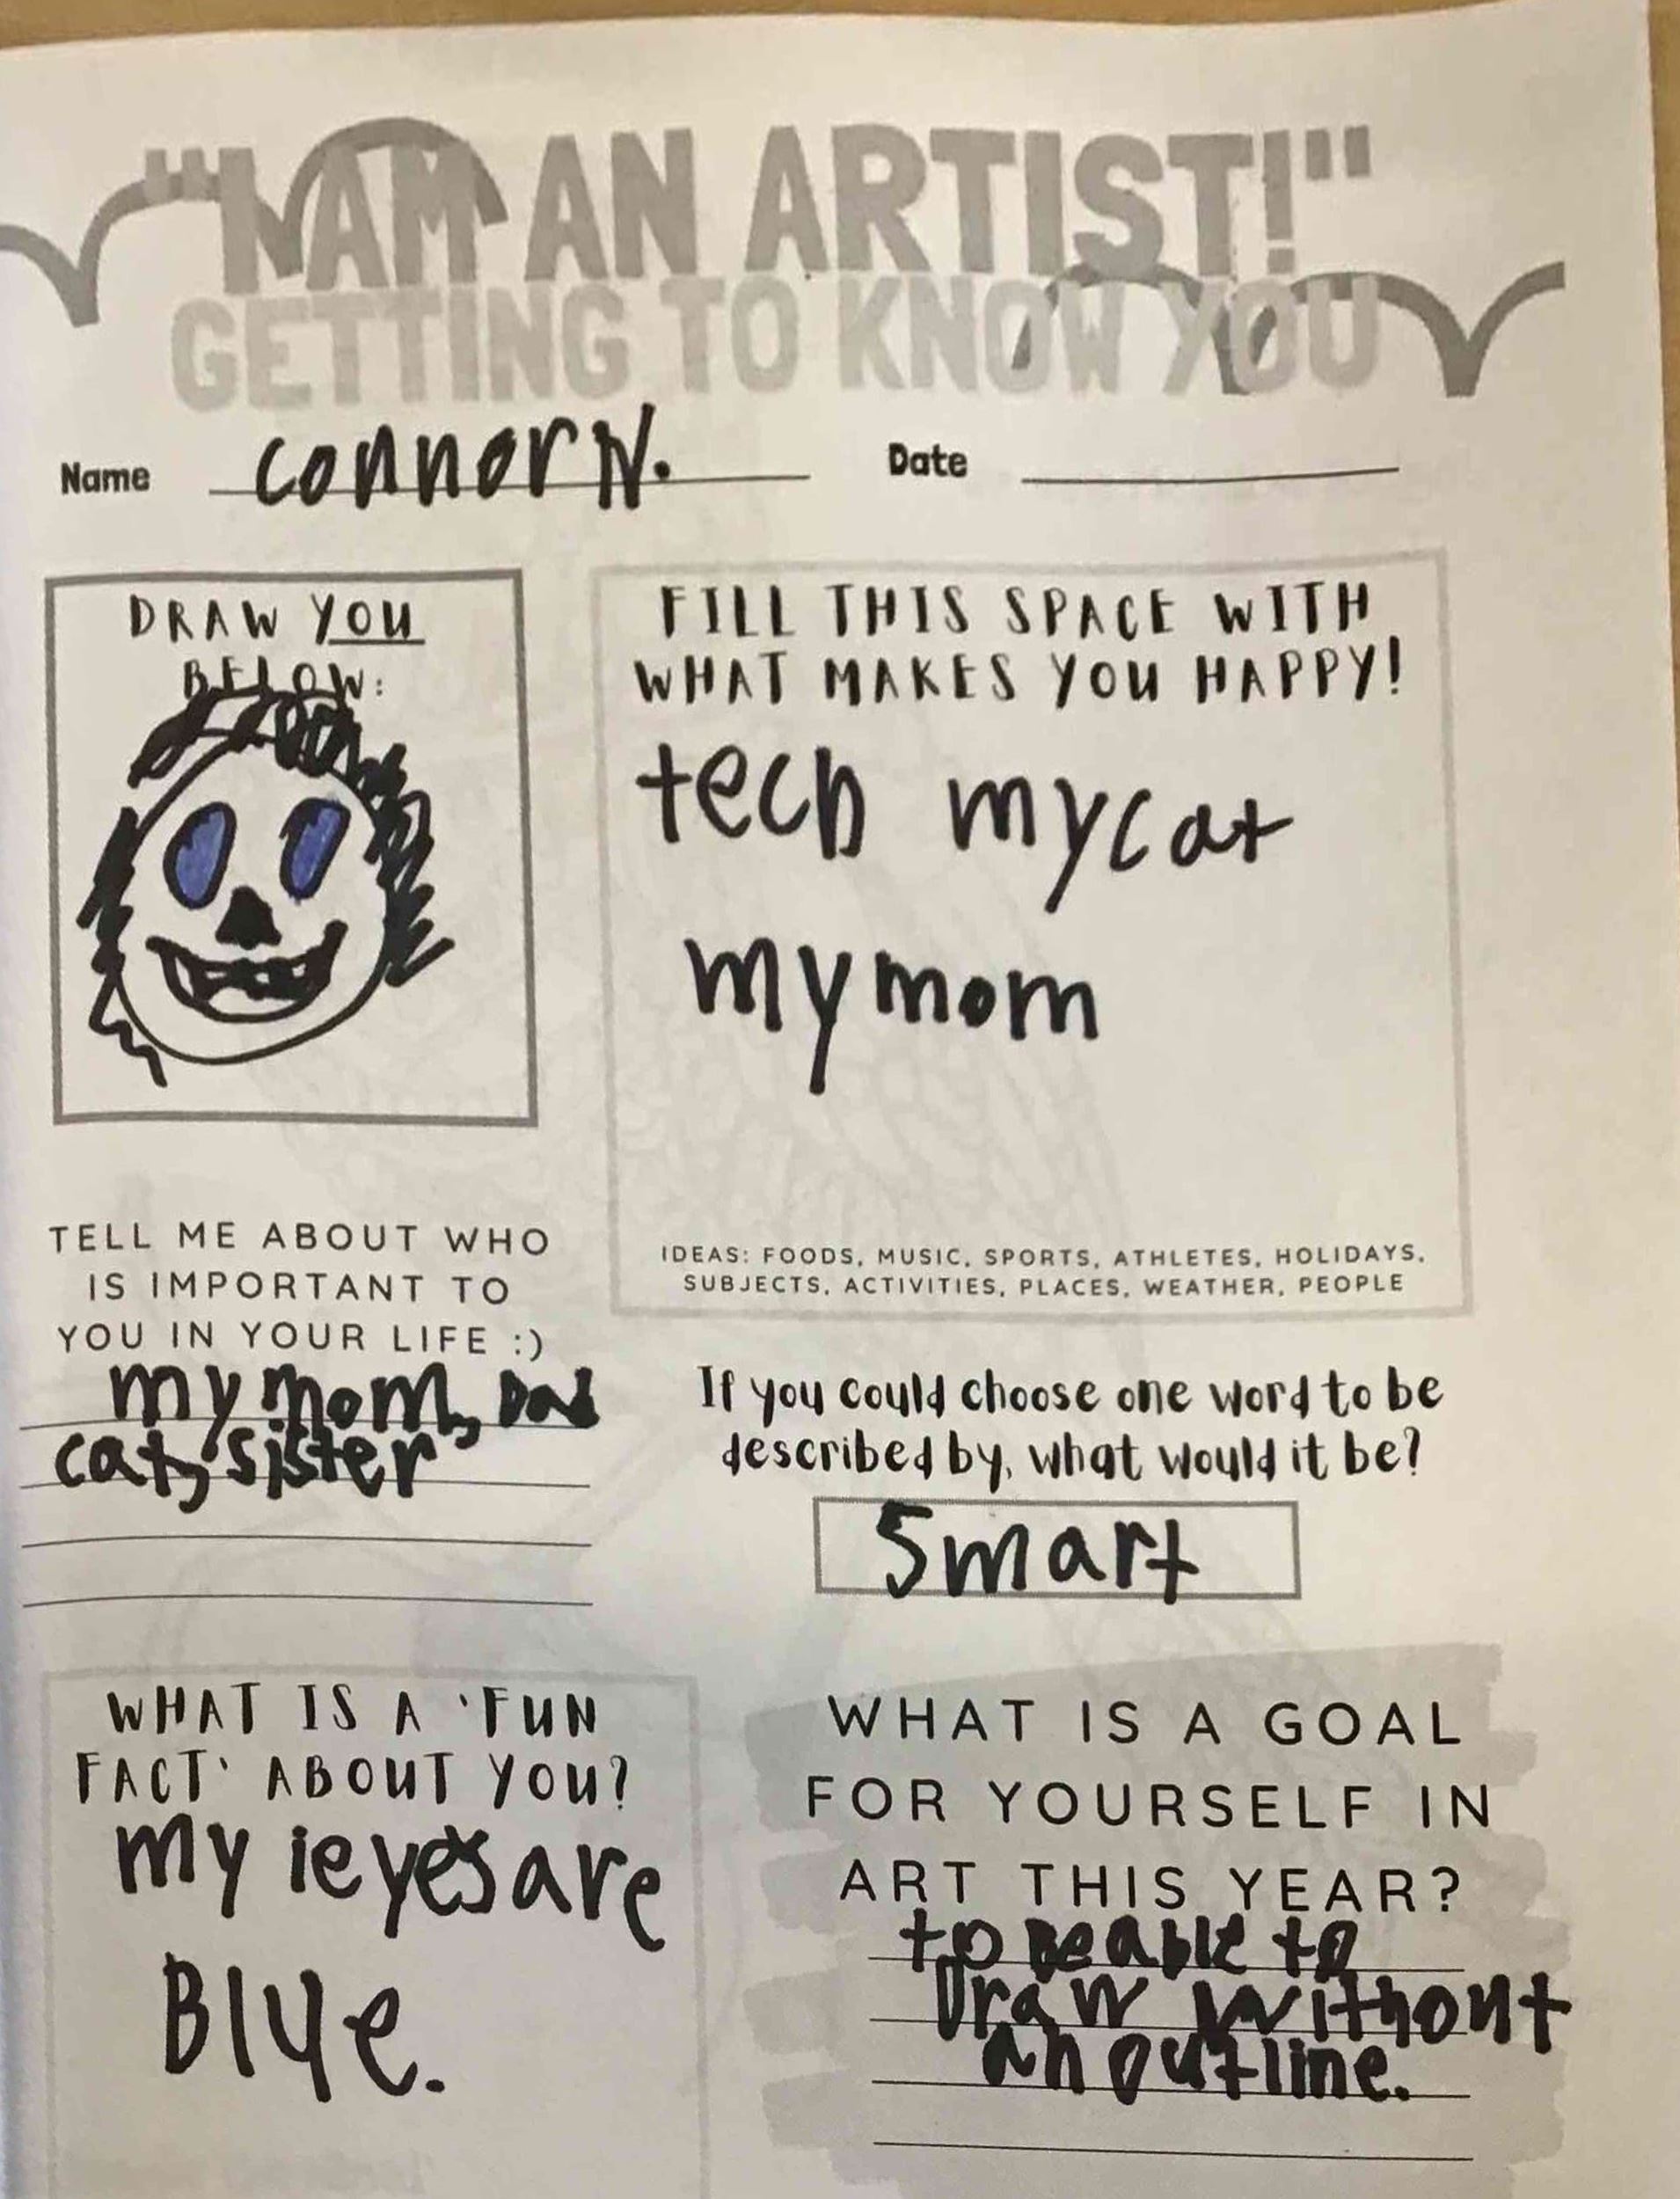 "I AM AN ARTIST!"
GETTING TO KNOW YOU
Name connor N. Date
DRAW YOU
BELOW:
FILL THIS SPACE WITH
WHAT MAKES YOU HAPPY!
tech my cat
my mom
IDEAS: FOODS, MUSIC, SPORTS, ATHLETES, HOLIDAYS,
SUBJECTS, ACTIVITIES, PLACES, WEATHER, PEOPLE
TELL ME ABOUT WHO
IS IMPORTANT TO
YOU IN YOUR LIFE :)
my mom, Dad
cat, sister
If you could choose one word to be
described by, what would it be?
Smart
WHAT IS A 'FUN
FACT' ABOUT YOU?
my ieyes are
Blue.
WHAT IS A GOAL
FOR YOURSELF IN
ART THIS YEAR?
to Be able to
Draw without
an outline.